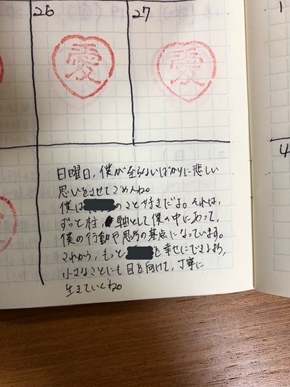 26
27
愛
愛
1
4
日曜日、僕が至らないばかりに悲しい
思いをさせてごめんね。
僕は のこと好きだよ。それは、
ずっと 、 軸として僕の中にあって、
僕の行動や思考の基点になっています。
これから、もっと を幸せにできるよう、
小さなことにも目を向けて、丁寧に
生きていくね。